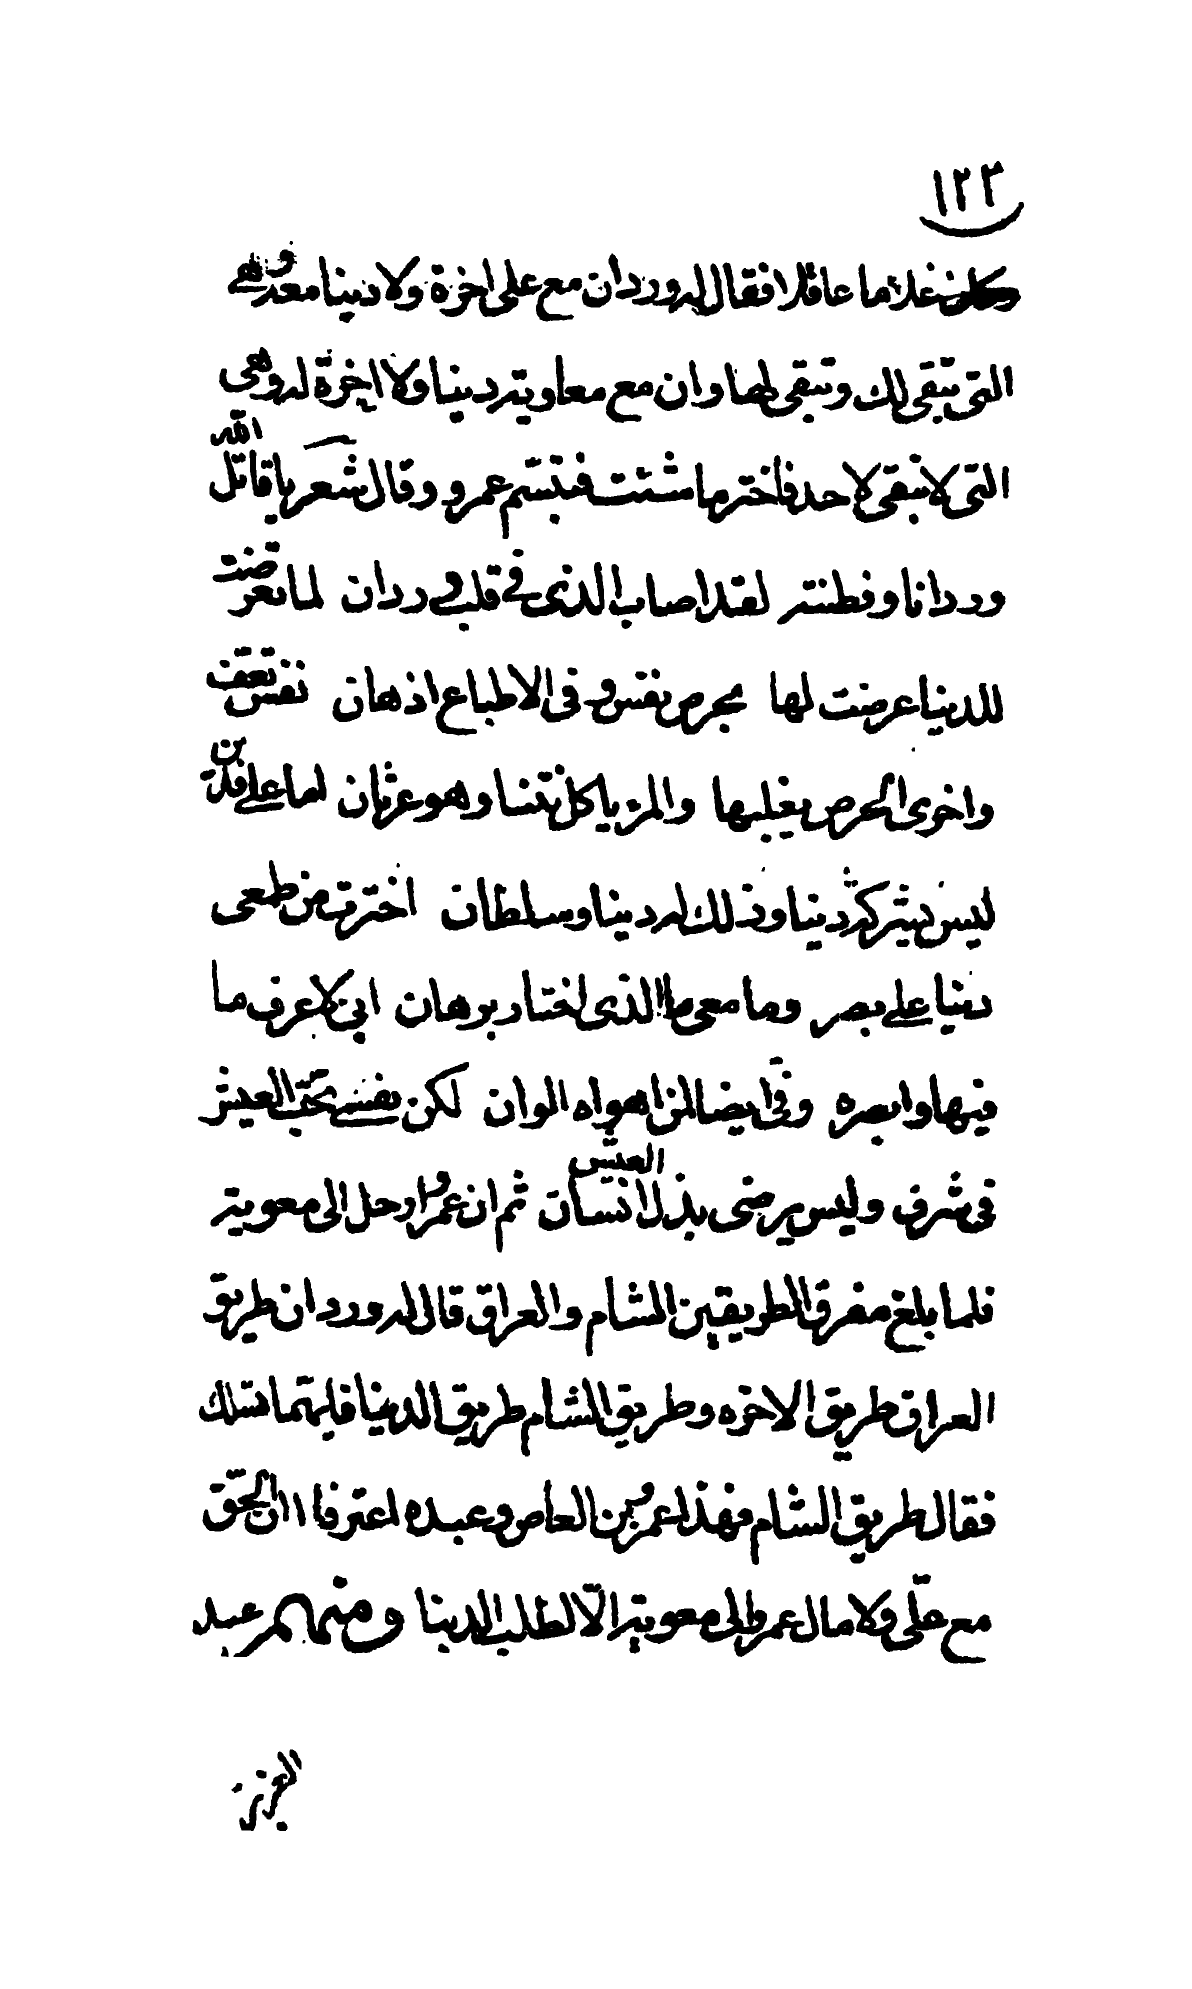 ١٢٣
وكان غلاما عاقلا فقال له وردان مع على اخرة ولا دينا معه وهي
التى تبقى لك وتبقى لها وان مع معاوية دينا ولا اخرة له وهى
التى لا تبقى لاحد فاختر ما شئت فتبسم عمرو وقال شعر يا قاتل الله
وردانا وفطنته لقد اصاب الذى في قلب وردان لما تعرضت
للدنيا عرضت لها بحرص نفس وفى الاطباع اذهان نفس تعف
واخرى الحرص يغلبها والمرء ياكل نتنا وهو غرثان اما على فدين
ليس يشركه دينا وذلك له دينا وسلطان اخترت من طمعى
دنيا على بصر وما معى ما الذى اختار برهان انى لاعرف ما
فيها وابصره وفى ايضا لمن اهواه الوان لكن نفسى تحب العيش
فى شرف وليس يرضى بذل العيش انسان ثم ان عمرو ارحل الى معوية
فلما بلغ مفرق الطريقين الشام والعراق قال له وردان طريق
العراق طريق الاخره وطريق الشام طريق الدنيا فايهما تسلك
فقال طريق الشام فهذا عمرو بن العاص وعبده اعترفا ان الحق
مع علّى ولا مال عمرو الى معوية الّا لطلب الدينا ومنهم عبد
العزيز